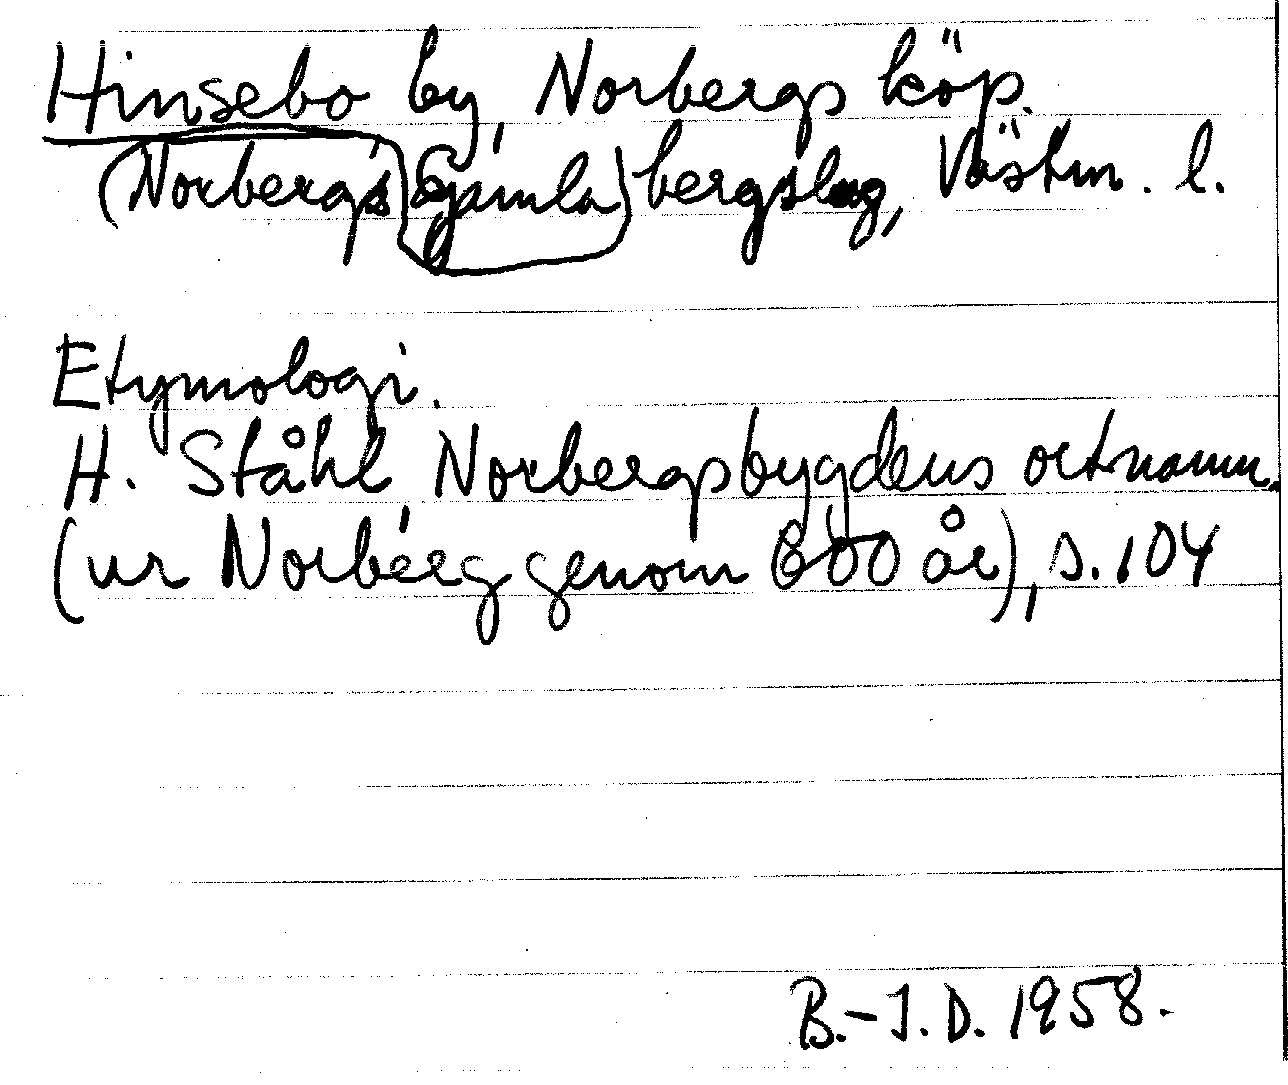 Hinsebo by, Norbergs köp.
(Norbergs Gamla) bergslag, Västm. l.
Etymologi.
H. Ståhl, Norbergsbygdens ortnamn.
(ur Norberg genom 600 år), s. 104
B.-I.D. 1958.